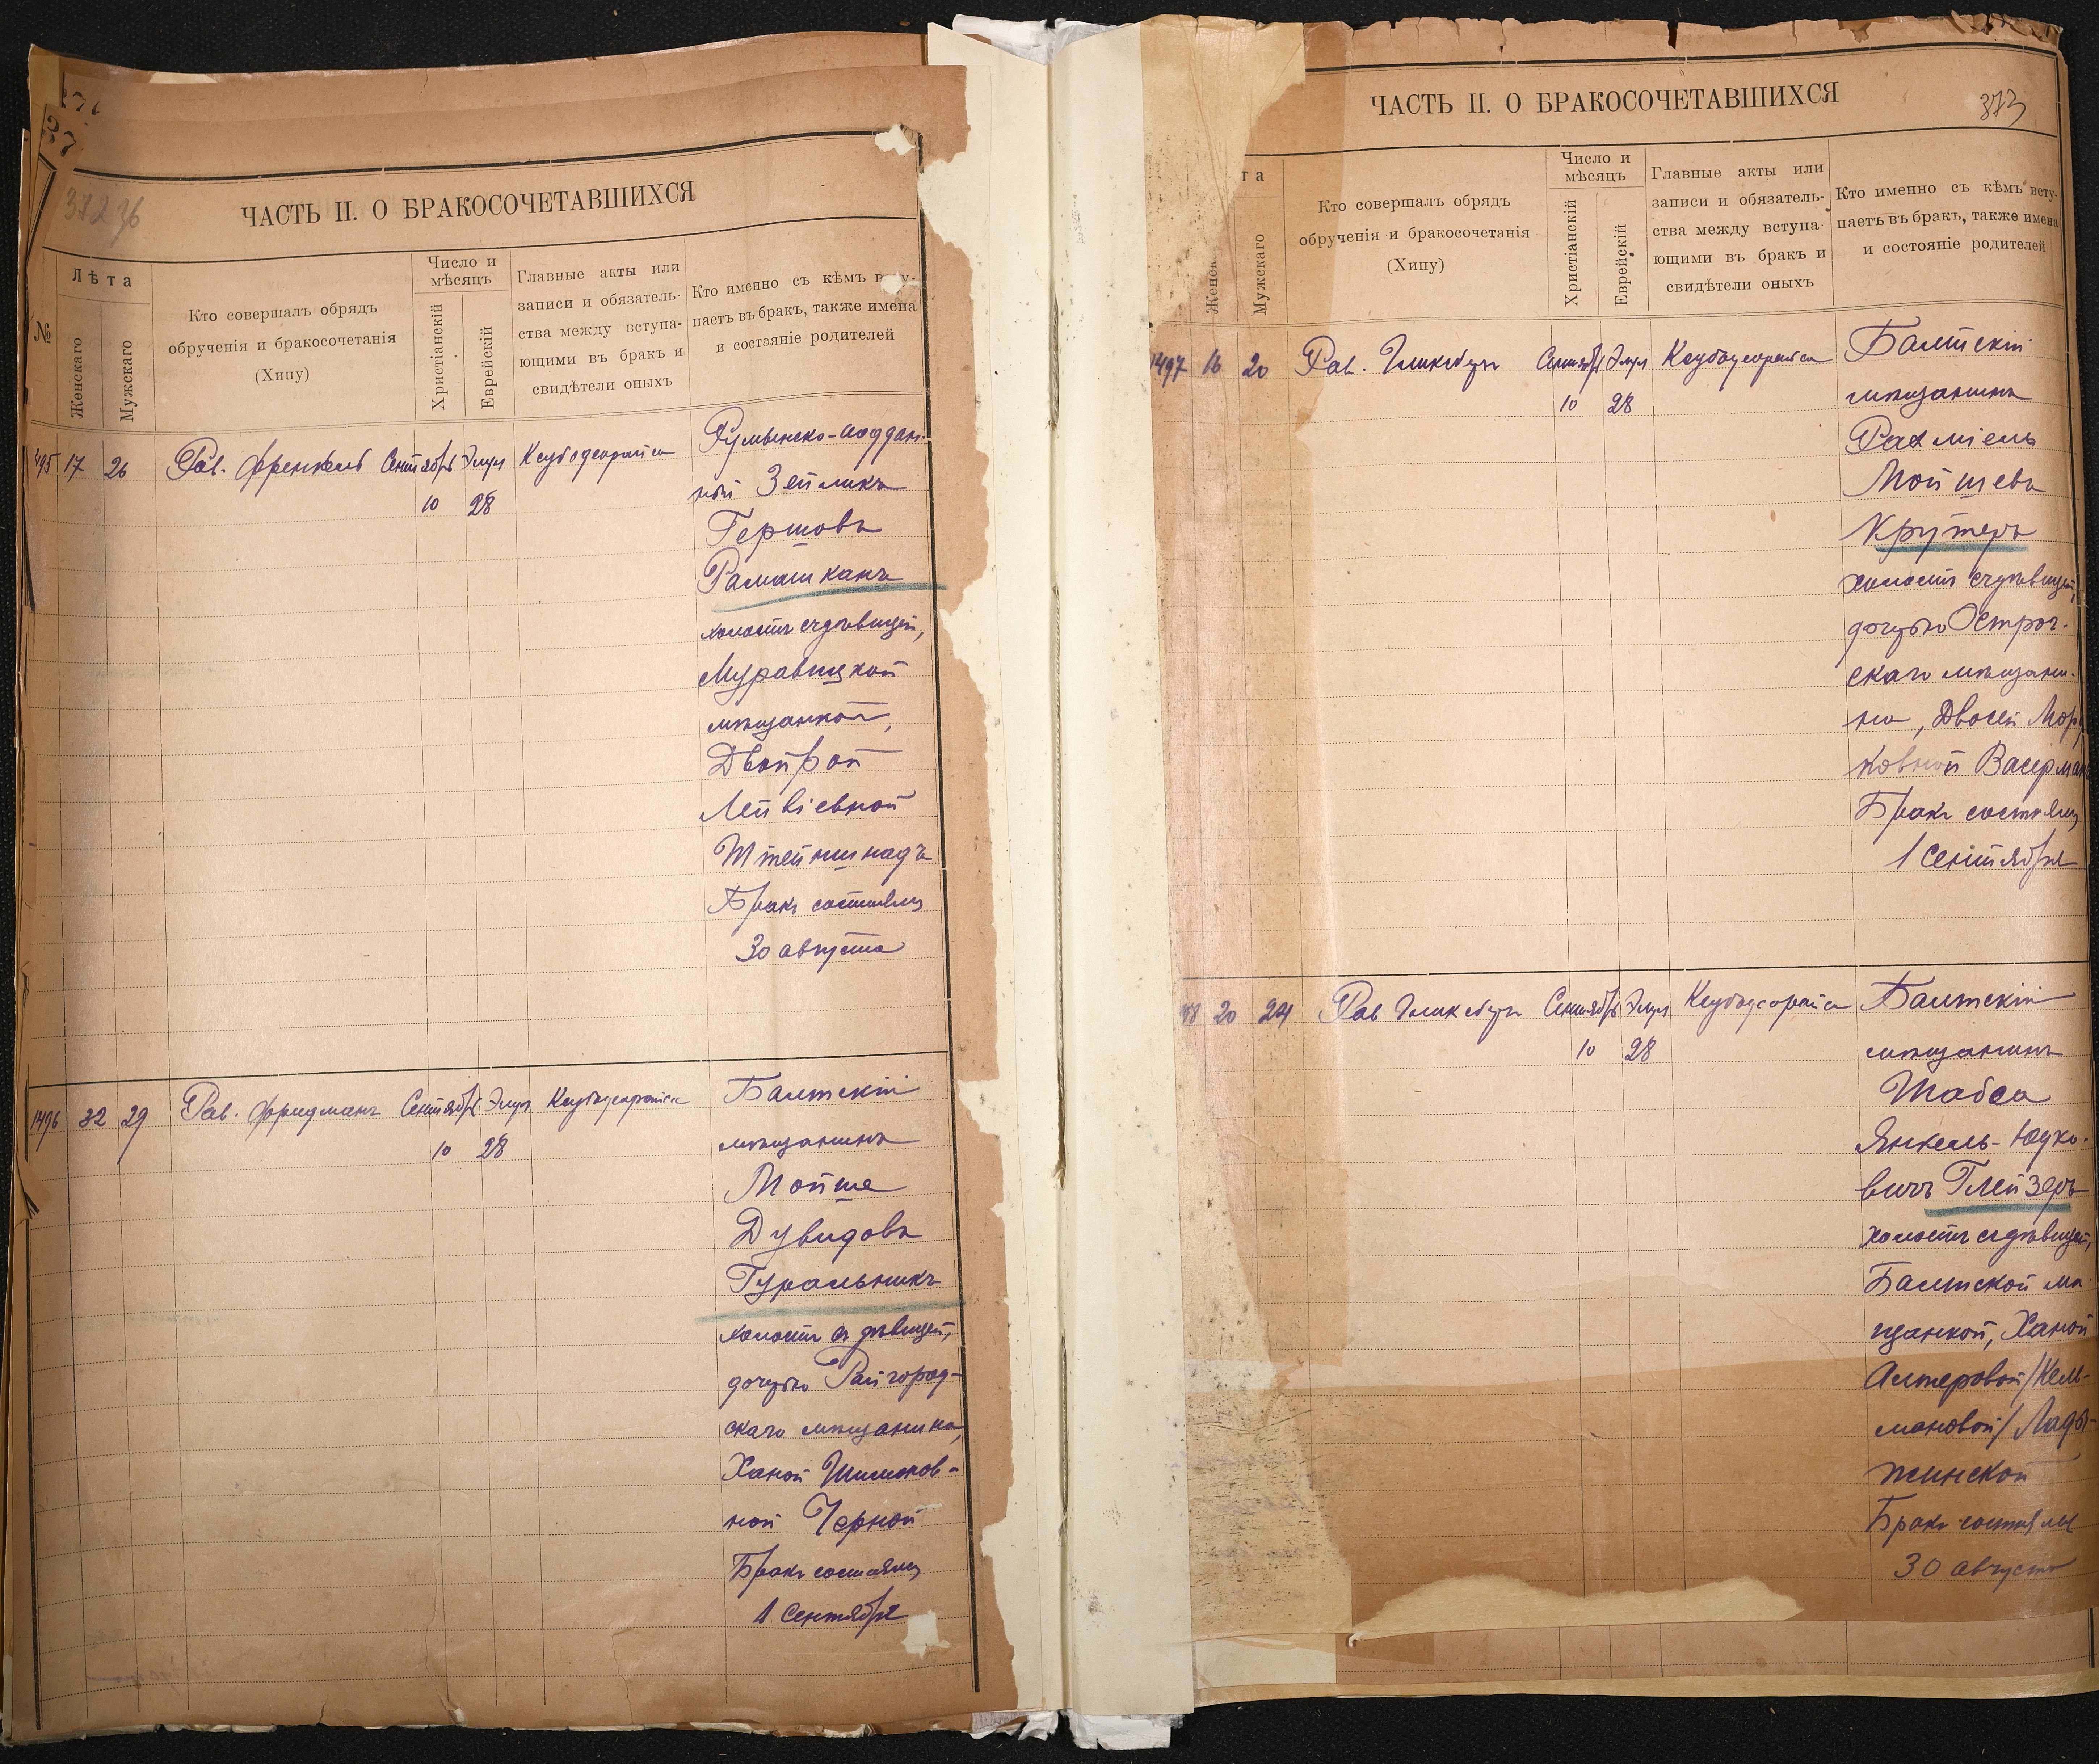 372
ЧАСТЬ II. О БРАКОСОЧЕТАВШИХСЯ
№
Лѣта
Женскаго
Мужскаго
Кто совершалъ обрядъ
обрученія и бракосочетанія
(Хипу)
Число и
мѣсяцъ
Христіанскій
Еврейскій
Главные акты или
записи и обязатель-
ства между вступа-
ющими въ бракъ и
свидѣтели оныхъ
Кто именно съ кѣмъ всту-
паетъ въ бракъ, также имена
и состояніе родителей
495 17 26 Рав. Френкель Сентябрь Элул
10 28
Румынско-поддан-
ный Зейликъ
Гершовъ
Рашашканъ
холостъ съ дѣвицей,
Муравицкой
мѣщанкой,
Двойрой
Лейвіевной
Штейншнадъ
Бракъ состоялся
30 августа
1496 32 29 Рав. Фридманъ Сентябрь Элул
10 28
Балтскій
мѣщанинъ
Мойше
Дувидовъ
Гуральникъ
холостъ съ дѣвицей,
дочерью Райгород-
скаго мѣщанина,
Ханой Шимонов-
ной Черной
Бракъ состоялся
1 Сентября
ЧАСТЬ II. О БРАКОСОЧЕТАВШИХСЯ
373
та
Женск
Мужскаго
Кто совершалъ обрядъ
обрученія и бракосочетанія
(Хипу)
Число и
мѣсяцъ
Христіанскій
Еврейскій
Главные акты или
записи и обязатель-
ства между вступа-
ющими въ бракъ и
свидѣтели оныхъ
Кто именно съ кѣмъ всту-
паетъ въ бракъ, также имена
и состояніе родителей
1497 16 20 Рав. Гликсбергъ Сентябрь Элул
10 28
Балтскій
мѣщанинъ
Рахміель
Мойшевъ
Крутеръ
холостъ съ дѣвицей,
дочерью Острог-
скаго мѣщани-
на, Двосей Мор
ковной Васерман
Бракъ состоялся
1 Сентября
98 20 24 Рав Гликсбергъ Сентябрь Элул
10 28
Балтскій
мѣщанинъ
Шабса
Янкель-Юдко-
вичъ Глейзеръ
холостъ съ дѣвицей,
Балтской мѣ-
щанкой, Ханой
Алтеровой /Кель-
мановой/ Ладыжинской
Бракъ состоялся
30 августа